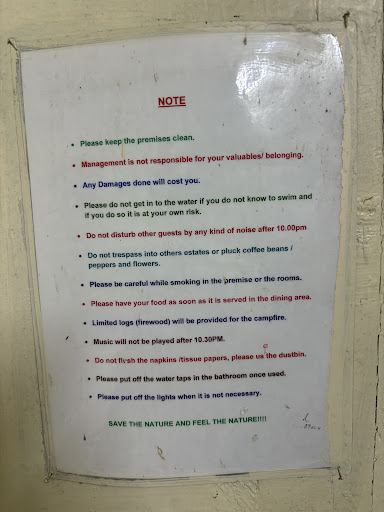 NOTE
• Please keep the premises clean.
• Management is not responsible for your valuables/ belonging.
• Any Damages done will cost you.
• Please do not get in to the water if you do not know to swim and
if you do so it is at your own risk.
• Do not disturb other guests by any kind of noise after 10.00pm
• Do not trespass into others estates or pluck coffee beans /
peppers and flowers.
• Please be careful while smoking in the premise or the rooms.
• Please have your food as soon as it is served in the dining area.
• Limited logs (firewood) will be provided for the campfire.
• Music will not be played after 10.30PM.
• Do not flush the napkins /tissue papers, please us the dustbin.
• Please put off the water taps in the bathroom once used.
• Please put off the lights when it is not necessary.
SAVE THE NATURE AND FEEL THE NATURE!!!!